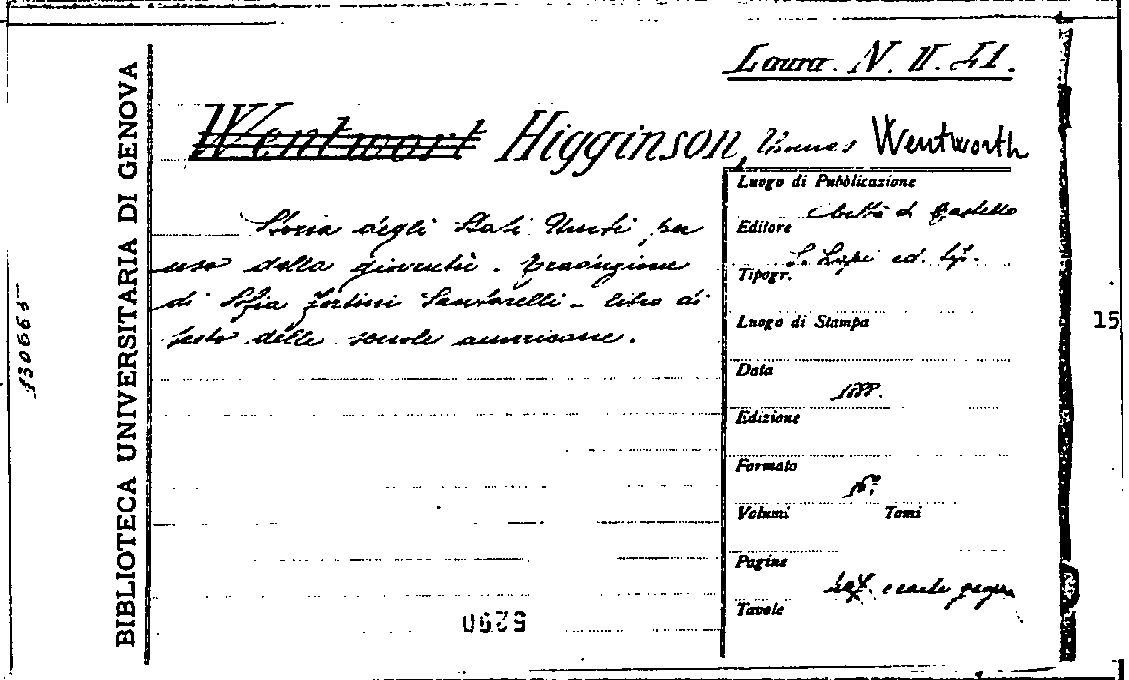 Laura. N. II. 41.
Wentwort Higginson, Thomas Wentworth
Storia degli Stati Uniti per
uso della gioventù. Traduzione
di Sofia Fortini Santarelli - libro di
testo delle scuole americane.
Luogo di Pubblicazione
Città di Castello
Editore
S. Lapi ed. tip.
Tipogr.
Luogo di Stampa
Data
1888.
Edizione
Formato
16°
Volumi Tomi
Pagine
Tavole
BIBLIOTECA UNIVERSITARIA DI GENOVA
330665
5290
15